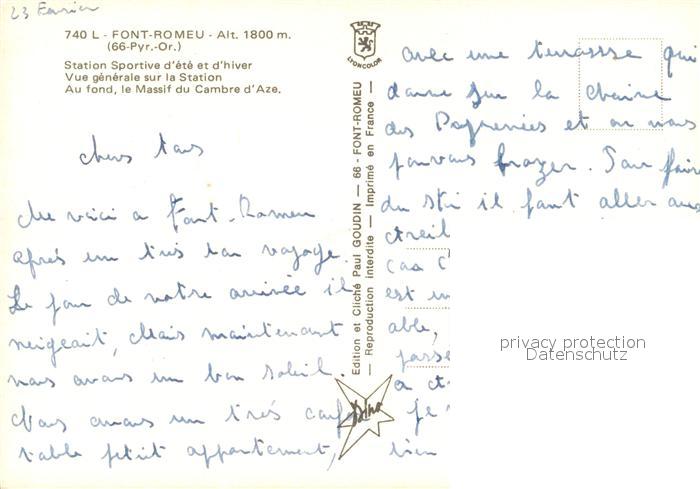 23 Fevrier
740 L - FONT-ROMEU - Alt. 1800 m.
(66-Pyr.-Or.)
Station Sportive d'été et d'hiver
Vue générale sur la Station
Au fond, le Massif du Cambre d'Aze.
chers tous
Me voici a Font-Romeu
après un très bon voyage.
Le jour de notre arrivée il
neigeait, Mais maintenant
nous avons un bon soleil.
Nous avons un très confor
table petit appartement,
LYONCOLOR
Edition et Cliché Paul GOUDIN — 66 - FONT-ROMEU
— Reproduction interdite — Imprimé en France —
avec une terrasse qui
donne sur la chaine
des Pyrenées et on nous
pouvons bronzer. Pour faire
du ski il faut aller aux
est un
able,
passe
a
je
bien
privacy protection
Datenschutz